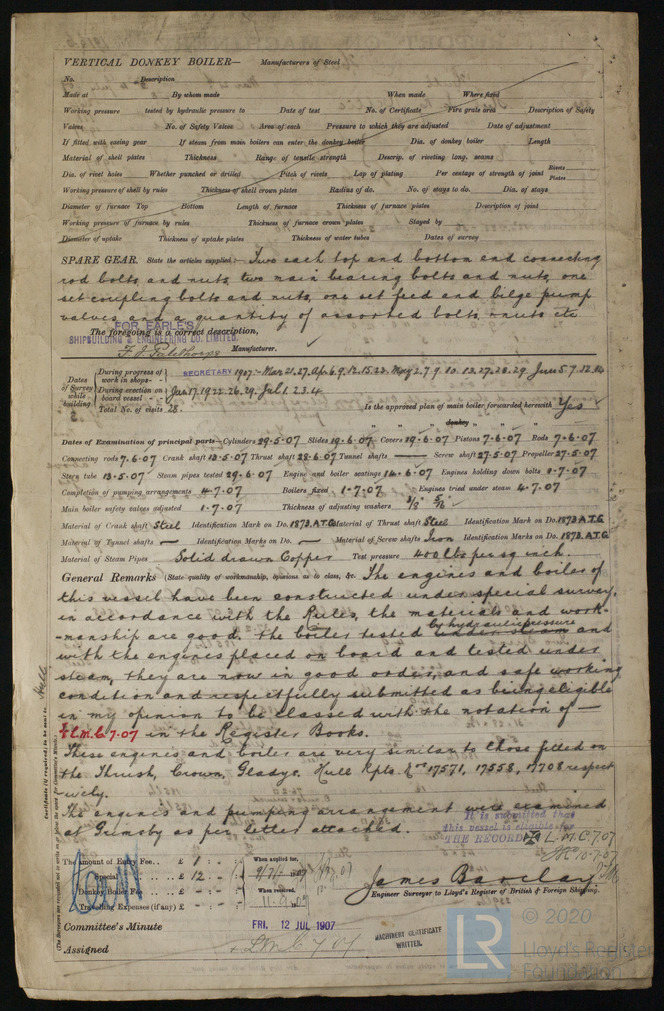 VERTICAL DONKEY BOILER— Manufacturers of Steel
No. Description
Made at By whom made When made Where fixed
Working pressure tested by hydraulic pressure to Date of test No. of Certificate Fire grate area Description of Safety
Valves No. of Safety Valves Area of each Pressure to which they are adjusted Date of adjustment
If fitted with easing gear If steam from main boilers can enter the donkey boiler Dia. of donkey boiler Length
Material of shell plates Thickness Range of tensile strength Descrip. of riveting long. seams
Dia. of rivet holes Whether punched or drilled Pitch of rivets Lap of plating Per centage of strength of joint Rivets Plates
Working pressure of shell by rules Thickness of shell crown plates Radius of do. No. of stays to do. Dia. of stays
Diameter of furnace Top Bottom Length of furnace Thickness of furnace plates Description of joint
Working pressure of furnace by rules Thickness of furnace crown plates Stayed by
Diameter of uptake Thickness of uptake plates Thickness of water tubes Dates of survey
SPARE GEAR. State the articles supplied:— Two each top and bottom end connecting
rod bolts and nuts, two main bearing bolts and nuts, one
set coupling bolts and nuts, one set feed and bilge pump
valves and a quantity of assorted bolts, nuts etc
The foregoing is a correct description,
FOR EARLE'S
SHIPBUILDING & ENGINEERING CO. LIMITED.
Manufacturer.
SECRETARY
Dates of Survey while building
During progress of work in shops - - 1907:- Mar 21. 27. Apr 6. 9. 12. 15. 23. May 2. 7. 9. 10. 13. 27. 28. 29. June 5. 7. 12. 14
During erection on board vessel - - Jun 17. 19. 22. 26. 29. Jul 1. 2. 3. 4
Total No. of visits 28. Is the approved plan of main boiler forwarded herewith Yes
" " " donkey " " "
Dates of Examination of principal parts—Cylinders 29.5.07 Slides 19.6.07 Covers 19.6.07 Pistons 7.6.07 Rods 7.6.07
Connecting rods 7.6.07 Crank shaft 13.5.07 Thrust shaft 28.6.07 Tunnel shafts — Screw shaft 27.5.07 Propeller 27.5.07
Stern tube 13.5.07 Steam pipes tested 29.6.07 Engine and boiler seatings 14.6.07 Engines holding down bolts 1.7.07
Completion of pumping arrangements 4.7.07 Boilers fixed 1.7.07 Engines tried under steam 4.7.07
Main boiler safety valves adjusted 1.7.07 Thickness of adjusting washers 3/8" 5/16"
Material of Crank shaft Steel Identification Mark on Do. 1873.A.T.G. Material of Thrust shaft Steel Identification Mark on Do. 1873.A.T.G.
Material of Tunnel shafts — Identification Marks on Do. — Material of Screw shafts Iron Identification Marks on Do. 1873.A.T.G.
Material of Steam Pipes Solid drawn Copper Test pressure 400 lbs per sq inch.
General Remarks (State quality of workmanship, opinions as to class, &c. The engines and boiler of
this vessel have been constructed under special survey,
in accordance with the Rules, the materials and work-
-manship are good. The boiler tested under steam by hydraulic pressure and
with the engines placed on board and tested under
steam, they are now in good order, and safe working
condition and respectfully submitted as being eligible
in my opinion to be classed with the notation of —
L.M.C. 7.07 in the Register Books.
These engines and boiler are very similar to those fitted on
the Thrush, Crown, Gladys. Hull Rpts. Nos 17571, 17558, 17708 respect
-ively.
The engines and pumping arrangement were examined
at Grimsby as per letter attached.
It is submitted that
this vessel is eligible for
THE RECORD L.M.C. 7.07
10.7.07
The amount of Entry Fee . . £ 1 : - : When applied for,
Special . . . . £ 12 : - : 9/7/1907
Donkey Boiler Fee . . £ - : - : When received,
Travelling Expenses (if any) £ - : - :
James Barclay
Engineer Surveyor to Lloyd's Register of British & Foreign Shipping.
Committee's Minute FRI. 12 JUL 1907
Assigned + L.M.C. 7.07
MACHINERY CERTIFICATE
WRITTEN.
© 2020
LR
Lloyd's Register
Foundation